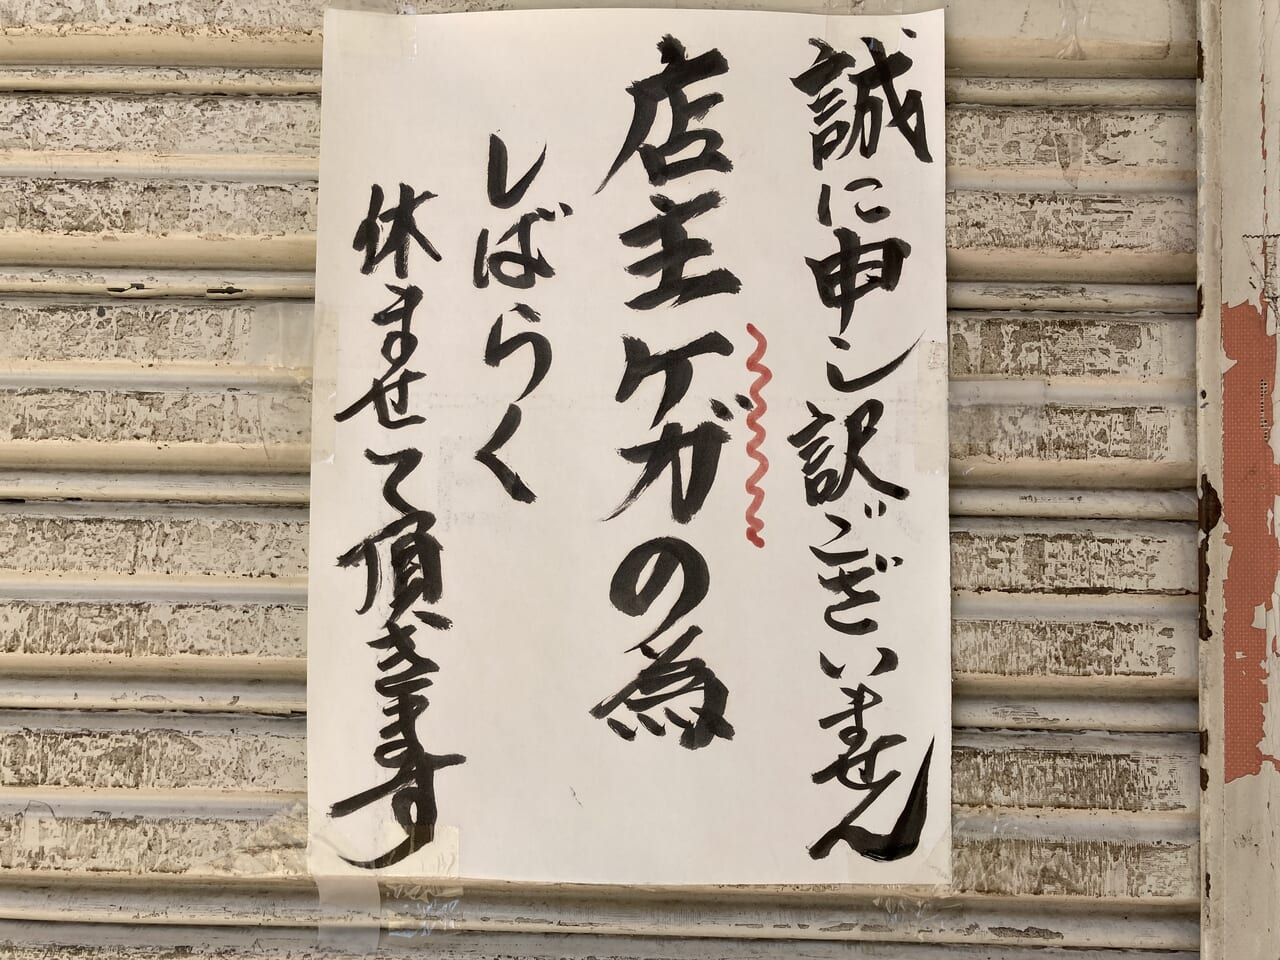 誠に申し訳ございません
店主ケガの為
しばらく
休ませて頂きます